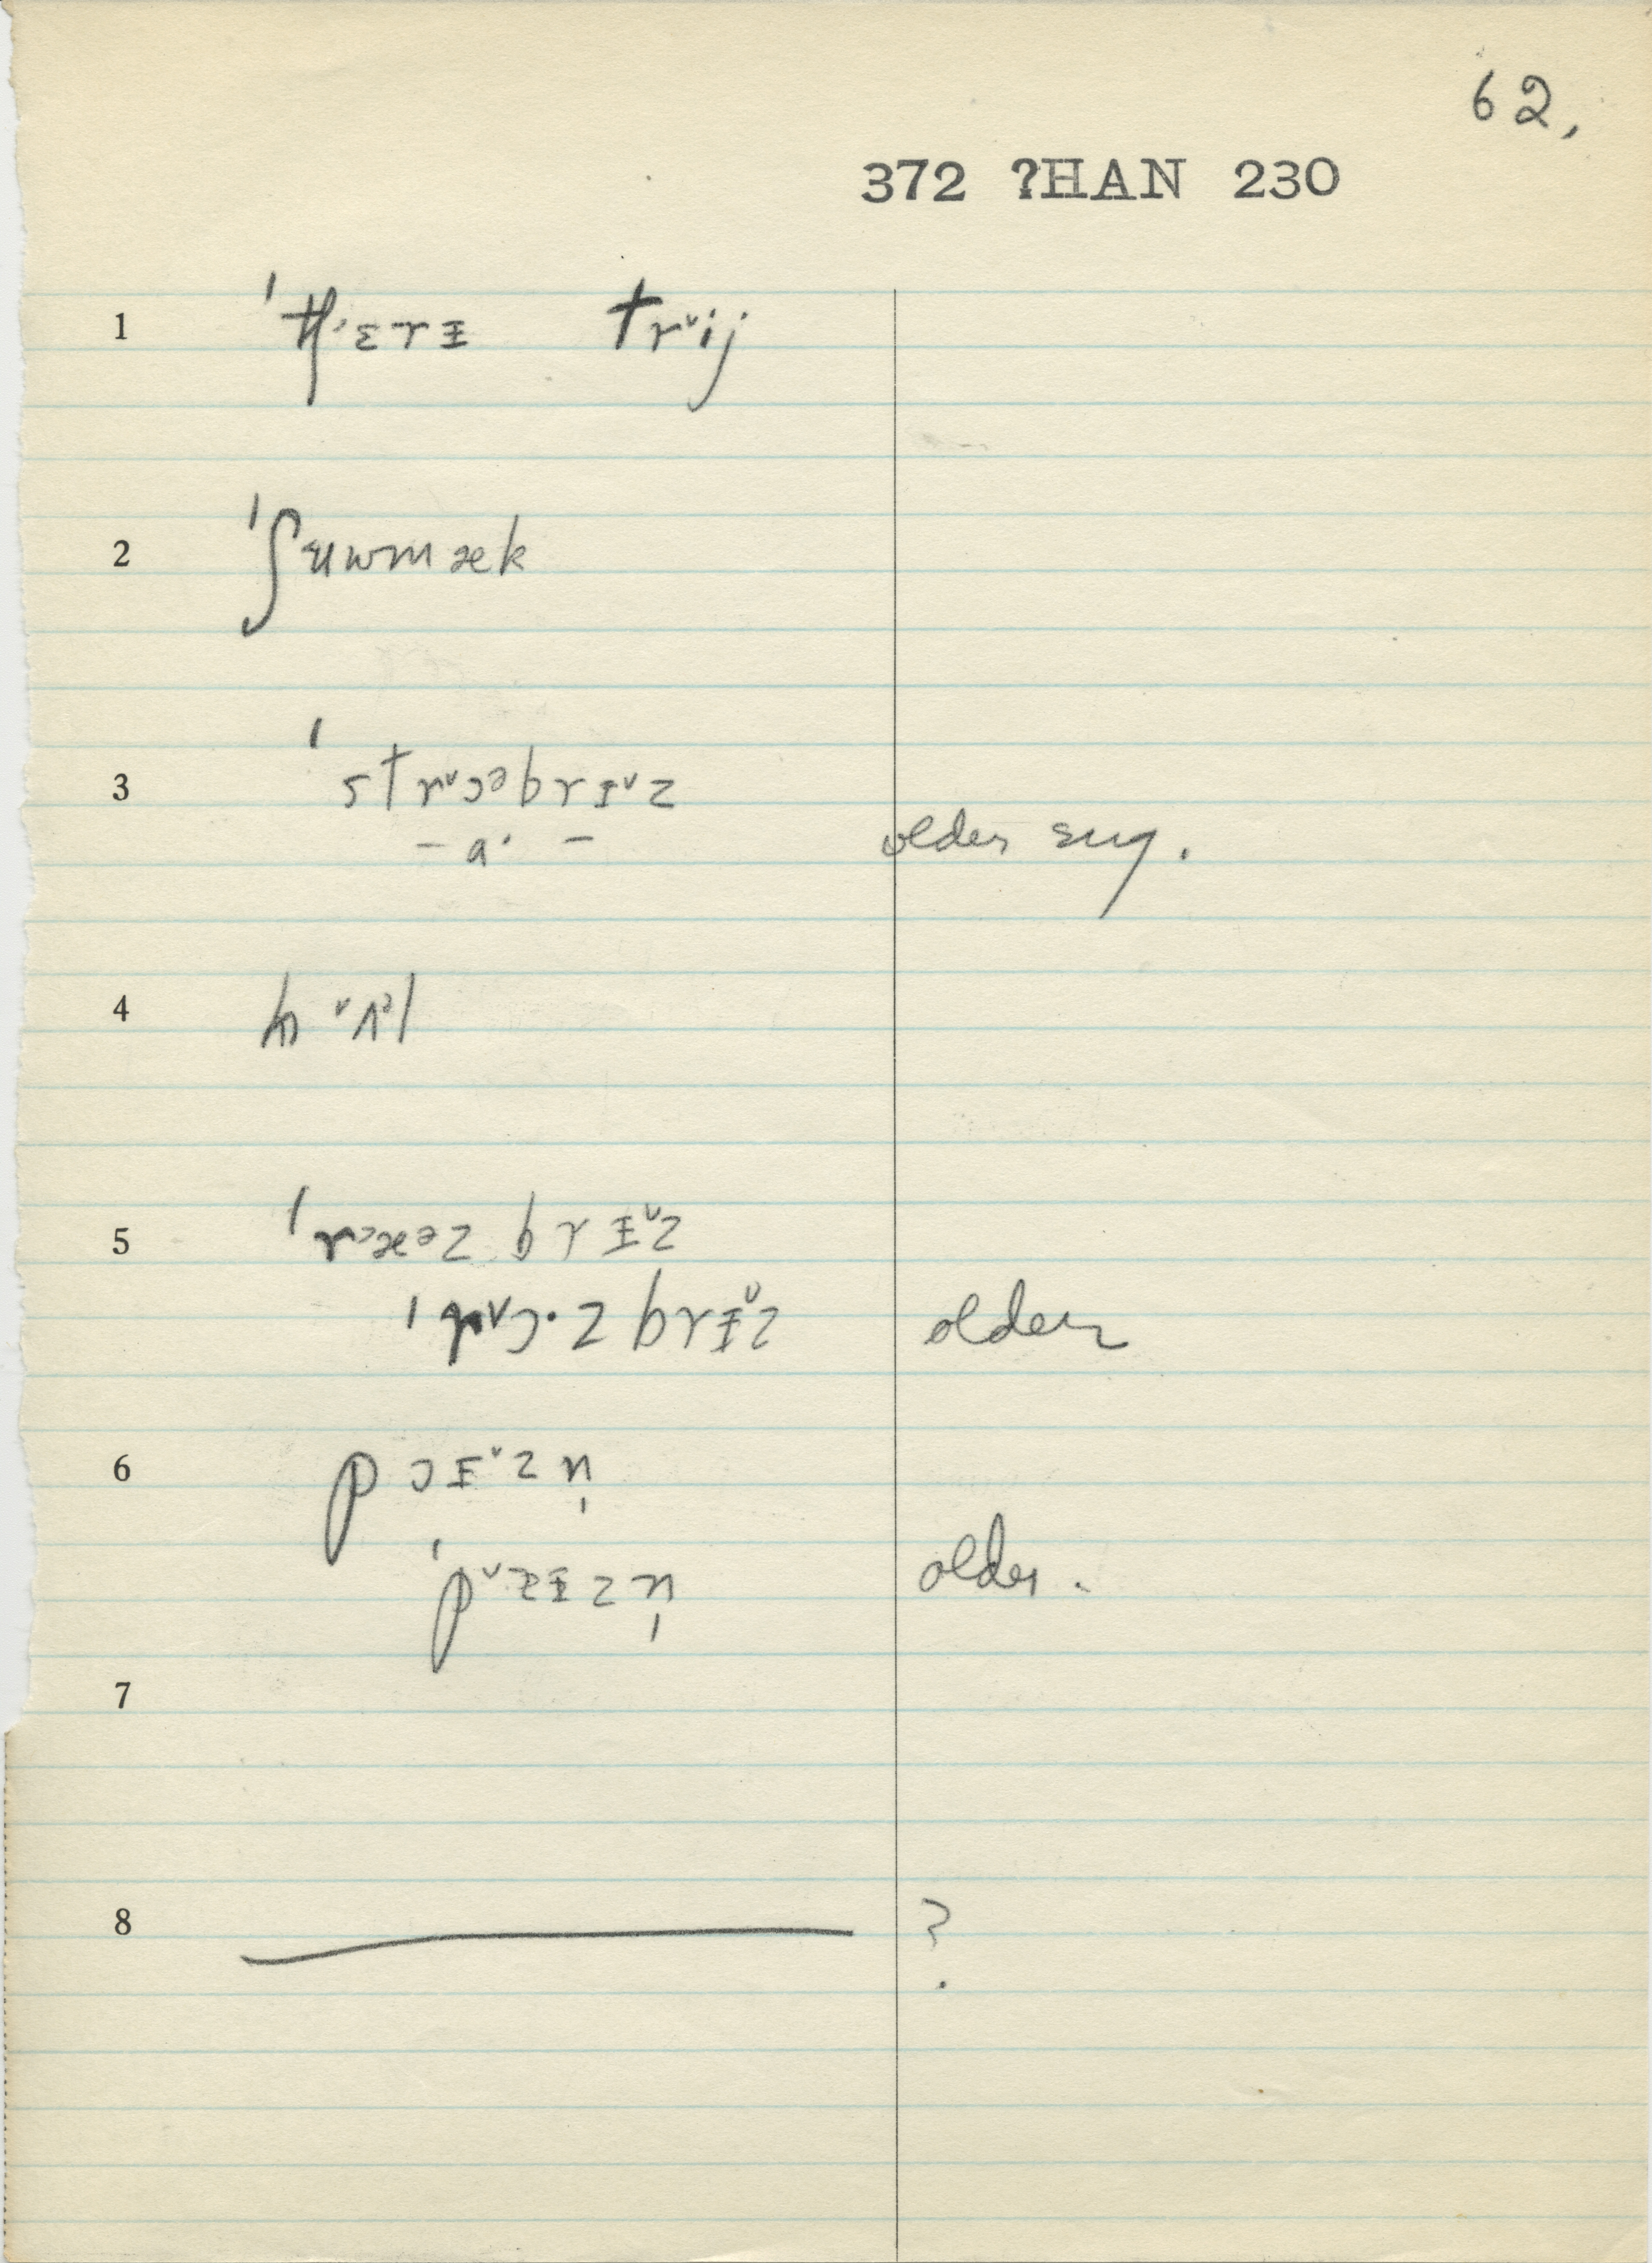 62,
372 ?HAN 230
1 ˈtʃɛrɪ trᵛij
2 ˈʃuwmæk
3 ˈstrᵛɔəbrɪᵛz
– a· – older sug.
4
5 ˈrᵓæᵊz brɪᵛz
ˈrᵛɔ·z brɪᵛz older
6 pɔɪᵛzn̩
ˈpᵛɜɪzn̩ older.
7
8 ?